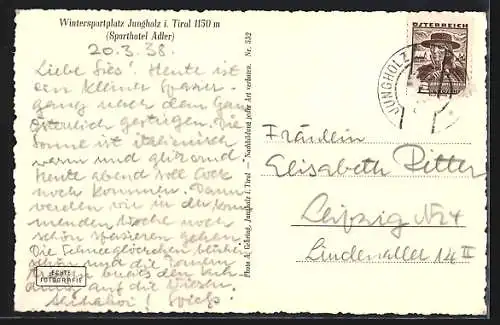 Wintersportplatz Jungholz i. Tirol 1150 m
(Sporthotel Adler)
20.3.38.
Liebe Lies! Heute ist
ein kleiner
gang nach dem
gestiegen. Die
Sonne ist italienisch
warm und
Heute abend soll
noch kommen. Dann
werden wir in der kom-
menden Woche noch
schön spazieren gehen.
Die Schneeglöckchen
schön und die
den
auf die Wiesen.
ECHTE
FOTOGRAFIE
Photo A. Gehring, Jungholz i. Tirol - Nachbildung jeder Art verboten. Nr. 532
ÖSTERREICH
JUNGHOLZ
Fräulein
Elisabeth Ritter
Leipzig N24
Lindenallee 14 II